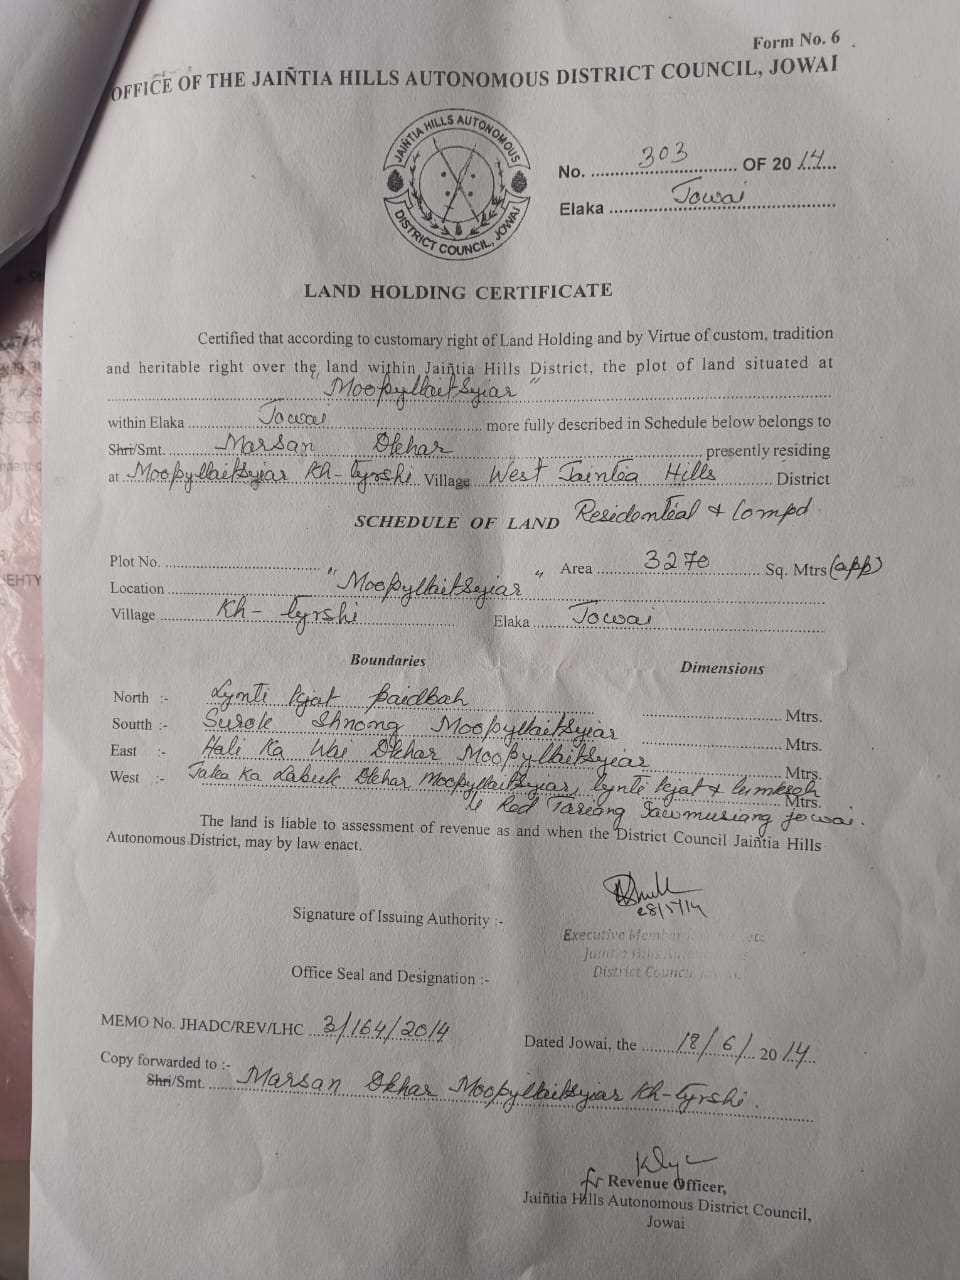 Form No. 6
OFFICE OF THE JAIÑTIA HILLS AUTONOMOUS DISTRICT COUNCIL, JOWAI
JAIÑTIA HILLS AUTONOMOUS
DISTRICT COUNCIL, JOWAI
No. 303 OF 2014
Elaka Jowai
LAND HOLDING CERTIFICATE
Certified that according to customary right of Land Holding and by Virtue of custom, tradition
and heritable right over the land within Jaiñtia Hills District, the plot of land situated at
"Moopyllaitsyiar"
within Elaka Jowai more fully described in Schedule below belongs to
Shri/Smt. Marsan Dkhar presently residing
at Moopyllaitsyiar Kh-tyrshi Village West Jaintia Hills District
SCHEDULE OF LAND Residential & Compd.
Plot No. Area 3270 Sq. Mtrs (app)
Location "Moopyllaitsyiar"
Village Kh-tyrshi Elaka Jowai
Boundaries Dimensions
North :- Lynti kjat paidbah Mtrs.
Soutth :- Surok Shnong Moopyllaitsyiar Mtrs.
East :- Hali Ka Wai Dkhar Moopyllaitsyiar Mtrs.
West :- Jaka Ka Labuk Dkhar Moopyllaitsyiar, lynti kjat & Mtrs.
U Red Tariang Jowai.
The land is liable to assessment of revenue as and when the District Council Jaiñtia Hills
Autonomous District, may by law enact.
28/5/14
Signature of Issuing Authority :-
Executive Member
Jaintia Hills
District Council
Office Seal and Designation :-
MEMO No. JHADC/REV/LHC 3/164/2014
Dated Jowai, the 18/6/ 2014
Copy forwarded to :-
Shri/Smt. Marsan Dkhar Moopyllaitsyiar Kh-tyrshi.
fr Revenue Officer,
Jaiñtia Hills Autonomous District Council,
Jowai